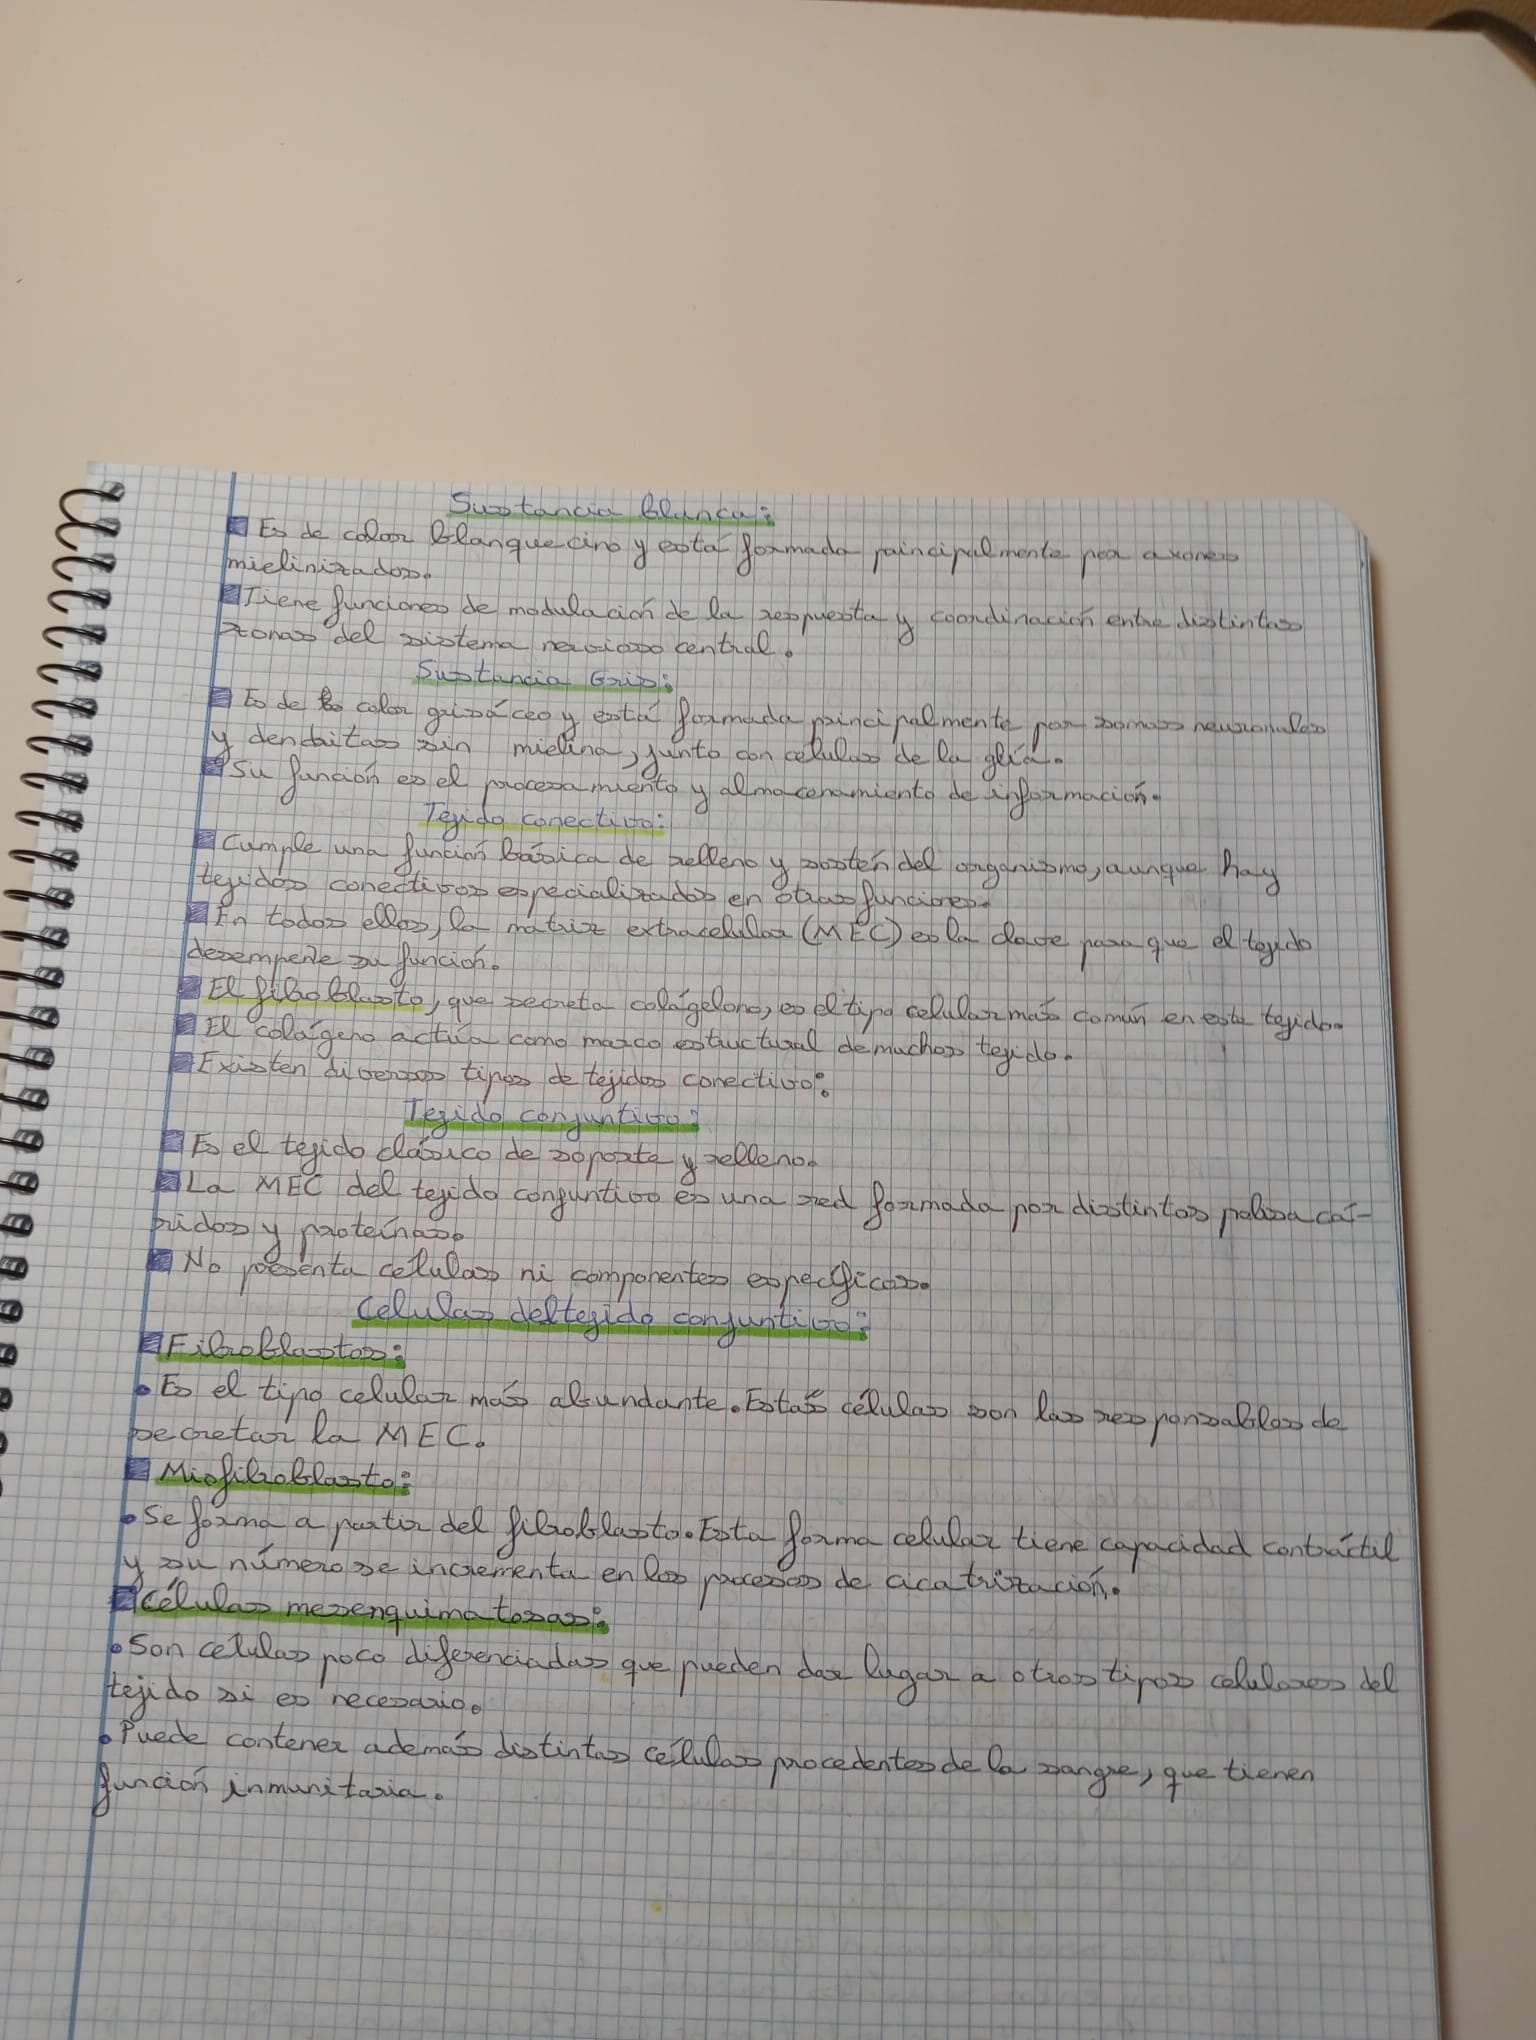 Sustancia blanca:
Es de color blanquecino y está formada principalmente por axones
mielinizados.
Tiene funciones de modulación de la respuesta y coordinación entre distintas
zonas del sistema nervioso central.
Sustancia Gris:
Es de color grisáceo y está formada principalmente por somas neuronales
y dendritas sin mielina, junto con células de la glía.
Su función es el procesamiento y almacenamiento de información.
Tejido conectivo:
Cumple una función básica de relleno y sostén del organismo, aunque hay
tejidos conectivos especializados en otras funciones.
En todos ellos, la matriz extracelular (MEC) es la clave para que el tejido
desempeñe su función.
El fibroblasto, que secreta colágelono, es el tipo celular más común en este tejido.
El colágeno actúa como marco estructural de muchos tejido.
Existen diversos tipos de tejidos conectivo:
Tejido conjuntivo:
Es el tejido clásico de soporte y relleno.
La MEC del tejido conjuntivo es una red formada por distintos polisacá-
ridos y proteínas.
No presenta células ni componentes específicos.
Células del tejido conjuntivo:
Fibroblastos:
• Es el tipo celular más abundante. Estás células son las responsables de
secretar la MEC.
Miofibroblasto:
• Se forma a partir del fibroblasto. Esta forma celular tiene capacidad contráctil
y su número se incrementa en los procesos de cicatrización.
Células mesenquimatosas:
• Son células poco diferenciadas que pueden dar lugar a otros tipos celulares del
tejido si es necesario.
• Puede contener además distintas células procedentes de la sangre, que tienen
función inmunitaria.